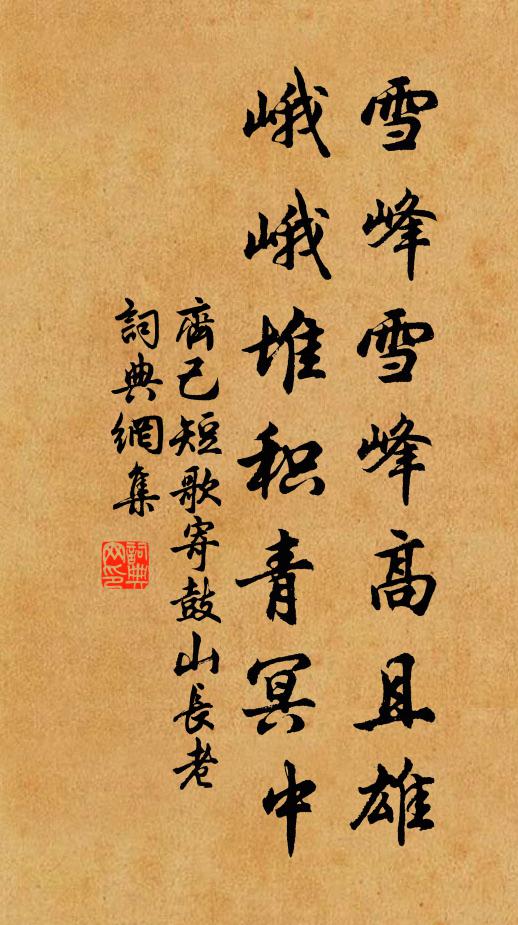 雪峰雪峰高且雄
峨峨堆积青冥中
齊己短歌寄鼓山長老
詞典網集
詞典網印